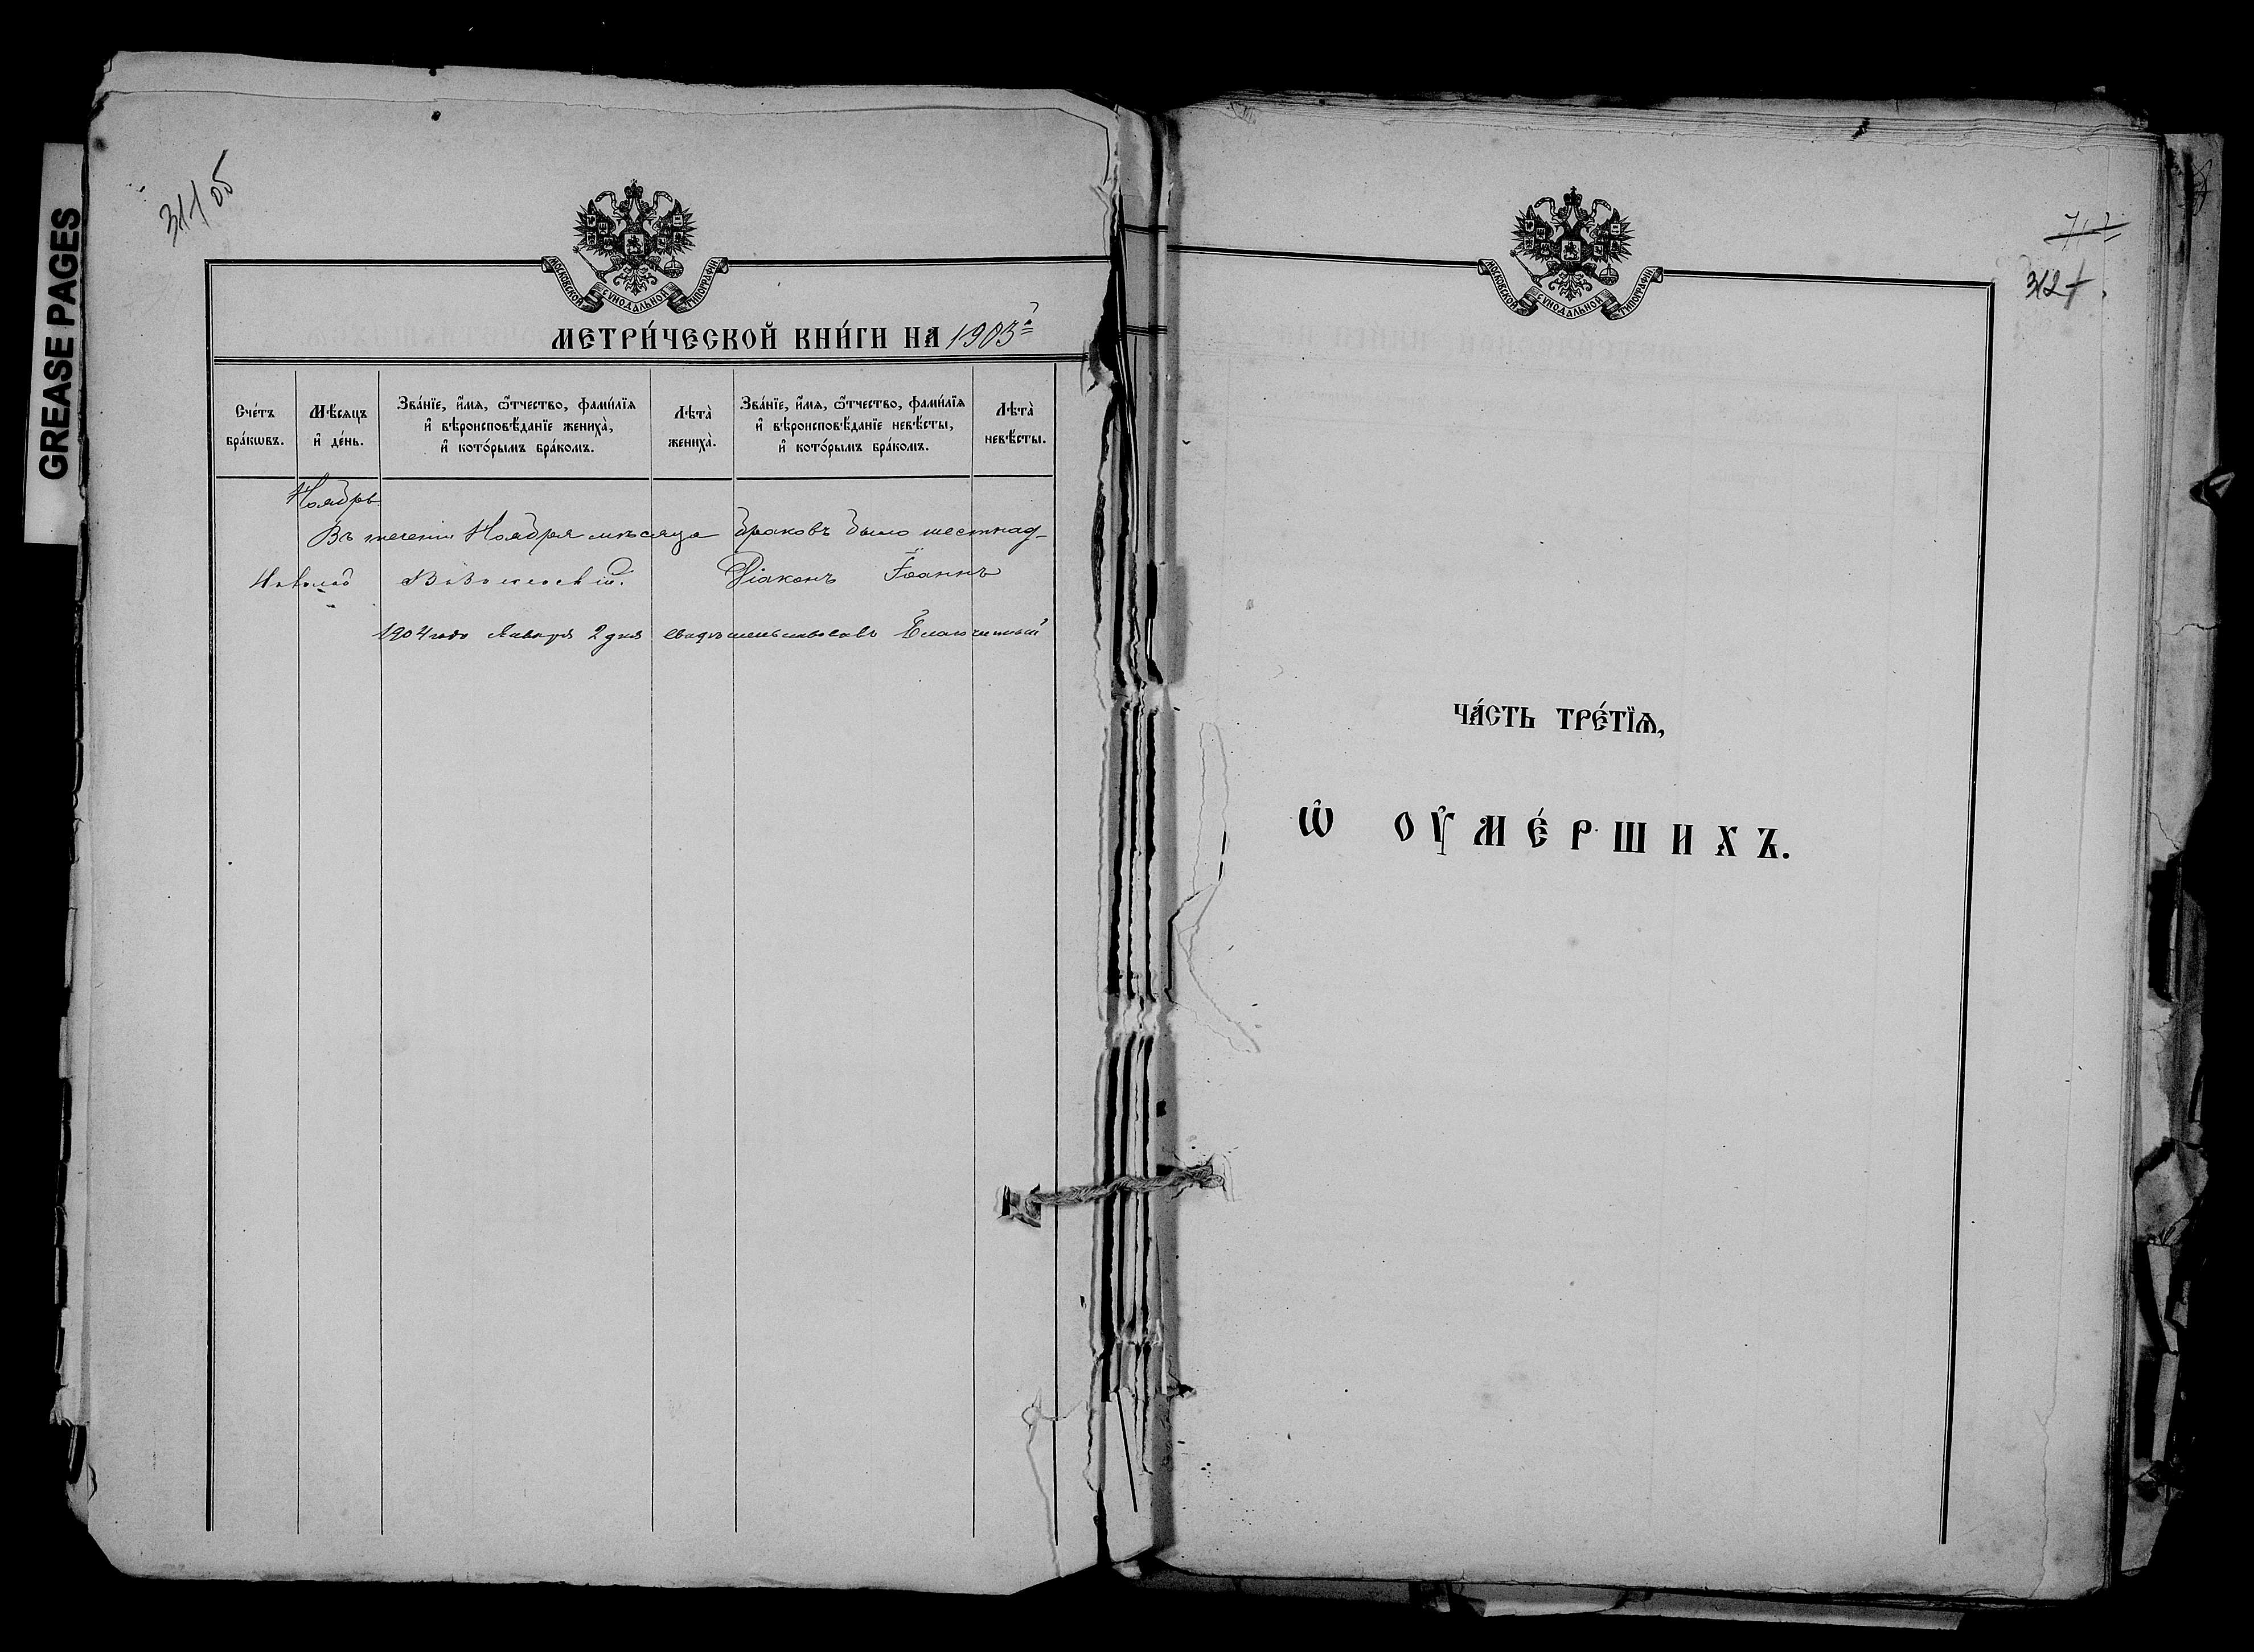 GREASE PAGES
311 об
МОСКОВСКОЙ СѴНОДАЛЬНОЙ ТИПОГРАФІИ
МЕТРИ́ЧЕСКОЙ КНИ́ГИ НА 1903й
Сче́тъ бра́кѡвъ.
Мѣ́сяцъ и҆ де́нь.
Зва́нїе, и҆́мѧ, ѻ҆́тчество, фами́лїѧ и҆ вѣроисповѣ́данїе женихà, и҆ кото́рымъ бра́комъ.
Лѣтà женихà.
Зва́нїе, и҆́мѧ, ѻ҆́тчество, фами́лїѧ и҆ вѣроисповѣ́данїе невѣ́сты, и҆ кото́рымъ бра́комъ.
Лѣтà невѣ́сты.
Ноябрь
Въ теченіи Ноября мѣсяца браковъ было шестнад-
Діаконъ Іоаннъ
1904 года Января 2 дня свидѣтельствовалъ Благочинный
МОСКОВСКОЙ СѴНОДАЛЬНОЙ ТИПОГРАФІИ
312
ЧА́СТЬ ТРЕ́ТЇѦ,
Ѡ҆ ОУ҆МЕ́РШИХЪ.